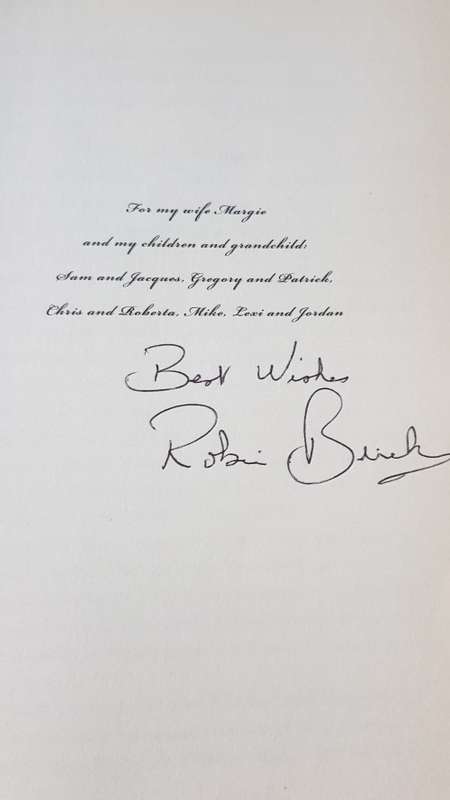 For my wife Margie
and my children and grandchild:
Sam and Jacques, Gregory and Patrick,
Chris and Roberta, Mike, Lexi and Jordan
Best Wishes
Robin